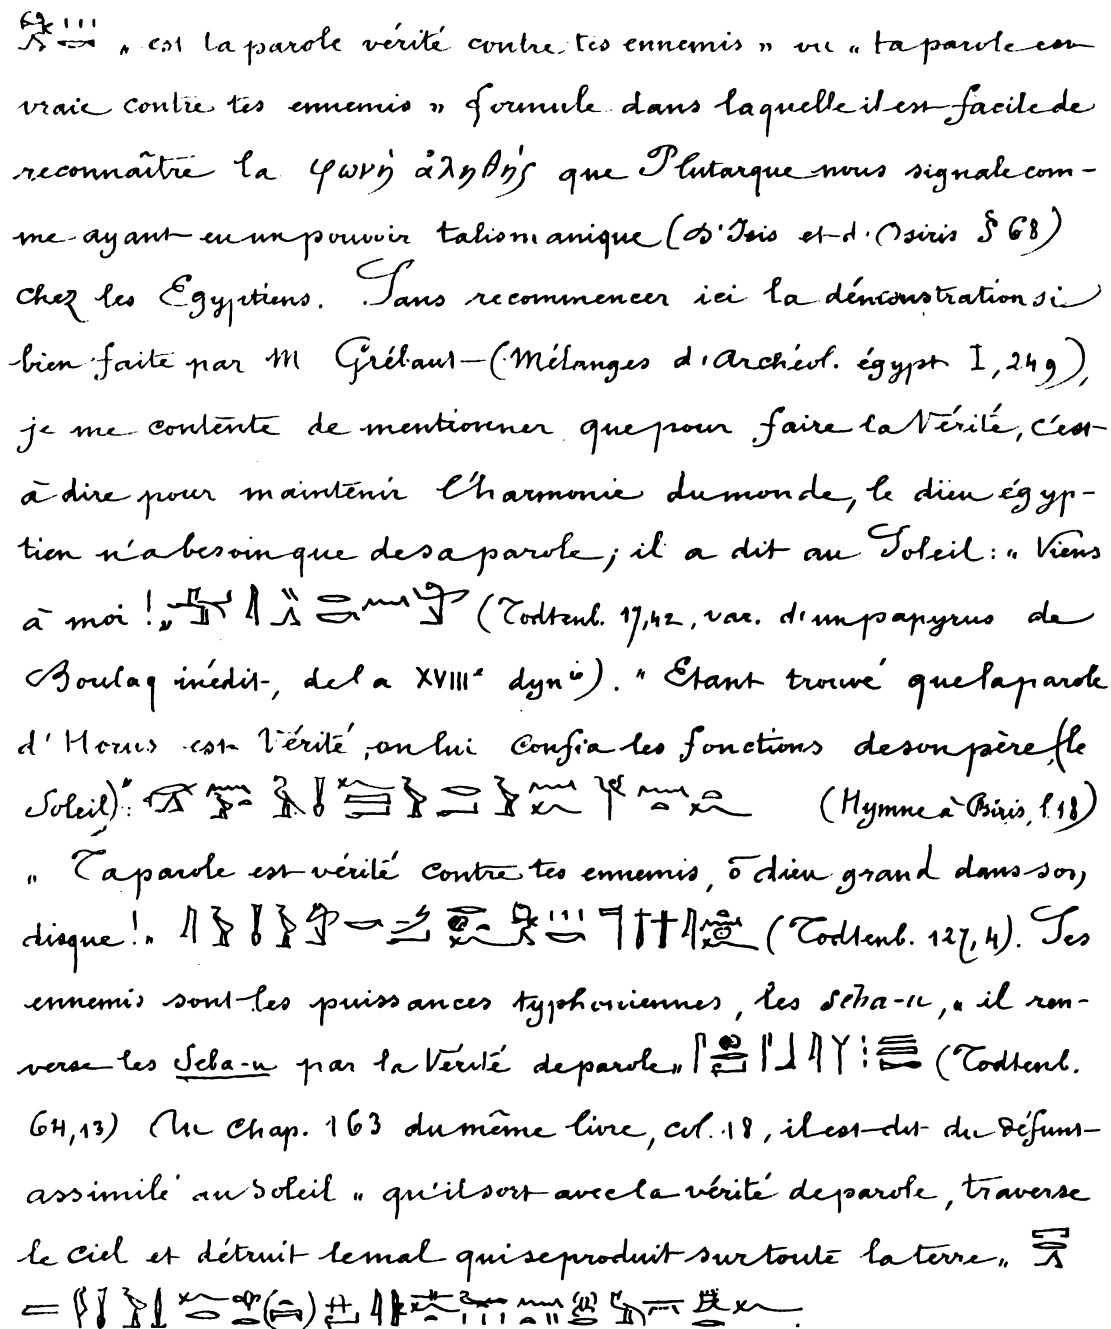 „ est la parole vérité contre tes ennemis » ou « ta parole est
vraie contre tes ennemis » formule dans laquelle il est facile de
reconnaître la φωνὴ ἀληθής que Plutarque nous signale com-
me ayant eu un pouvoir talismanique (D'Isis et d'Osiris § 68)
chez les Egyptiens. Sans recommencer ici la démonstration si
bien faite par M Grébaut (Mélanges d'Archéol. égypt I, 249),
je me contente de mentionner que pour faire la Vérité, c'est
à dire pour maintenir l'harmonie du monde, le dieu égyp-
tien n'a besoin que de sa parole; il a dit au Soleil: « Viens
à moi ! » (Todtenb. 17,42, var. d'un papyrus de
Boulaq inédit, de la XVIIIe dynie). " Etant trouvé que la parole
d'Horus est Vérité, on lui confia les fonctions de son père, (le
Soleil)": (Hymne à Osiris, l. 18)
" Ta parole est vérité contre tes ennemis, ô dieu grand dans son
disque ! » (Todtenb. 127, 4). Ses
ennemis sont les puissances typhoniennes, les seba-u, « il ren-
verse les Seba-u par la Vérité de parole » (Todtenb.
64,13) Au Chap. 163 du même livre, col. 18, il est dit du défunt
assimilé au Soleil « qu'il sort avec la vérité de parole, traverse
le ciel et détruit le mal qui se produit sur toute la terre »